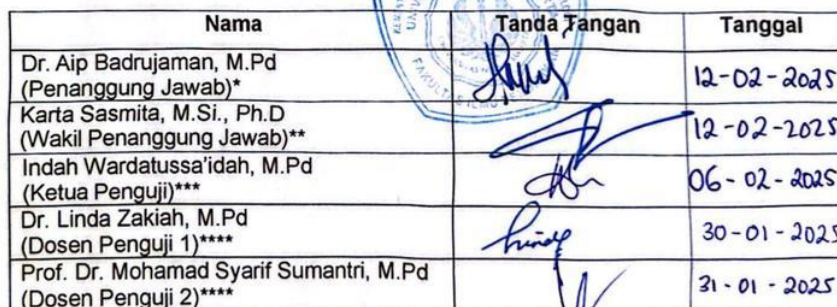 Nama Tanda Tangan Tanggal
Dr. Aip Badrujaman, M.Pd
(Penanggung Jawab)* 12-02-2025
Karta Sasmita, M.Si., Ph.D
(Wakil Penanggung Jawab)** 12-02-2025
Indah Wardatussa'idah, M.Pd
(Ketua Penguji)*** 06-02-2025
Dr. Linda Zakiah, M.Pd
(Dosen Penguji 1)**** 30-01-2025
Prof. Dr. Mohamad Syarif Sumantri, M.Pd
(Dosen Penguji 2)**** 31-01-2025
FAKULTAS ILMU